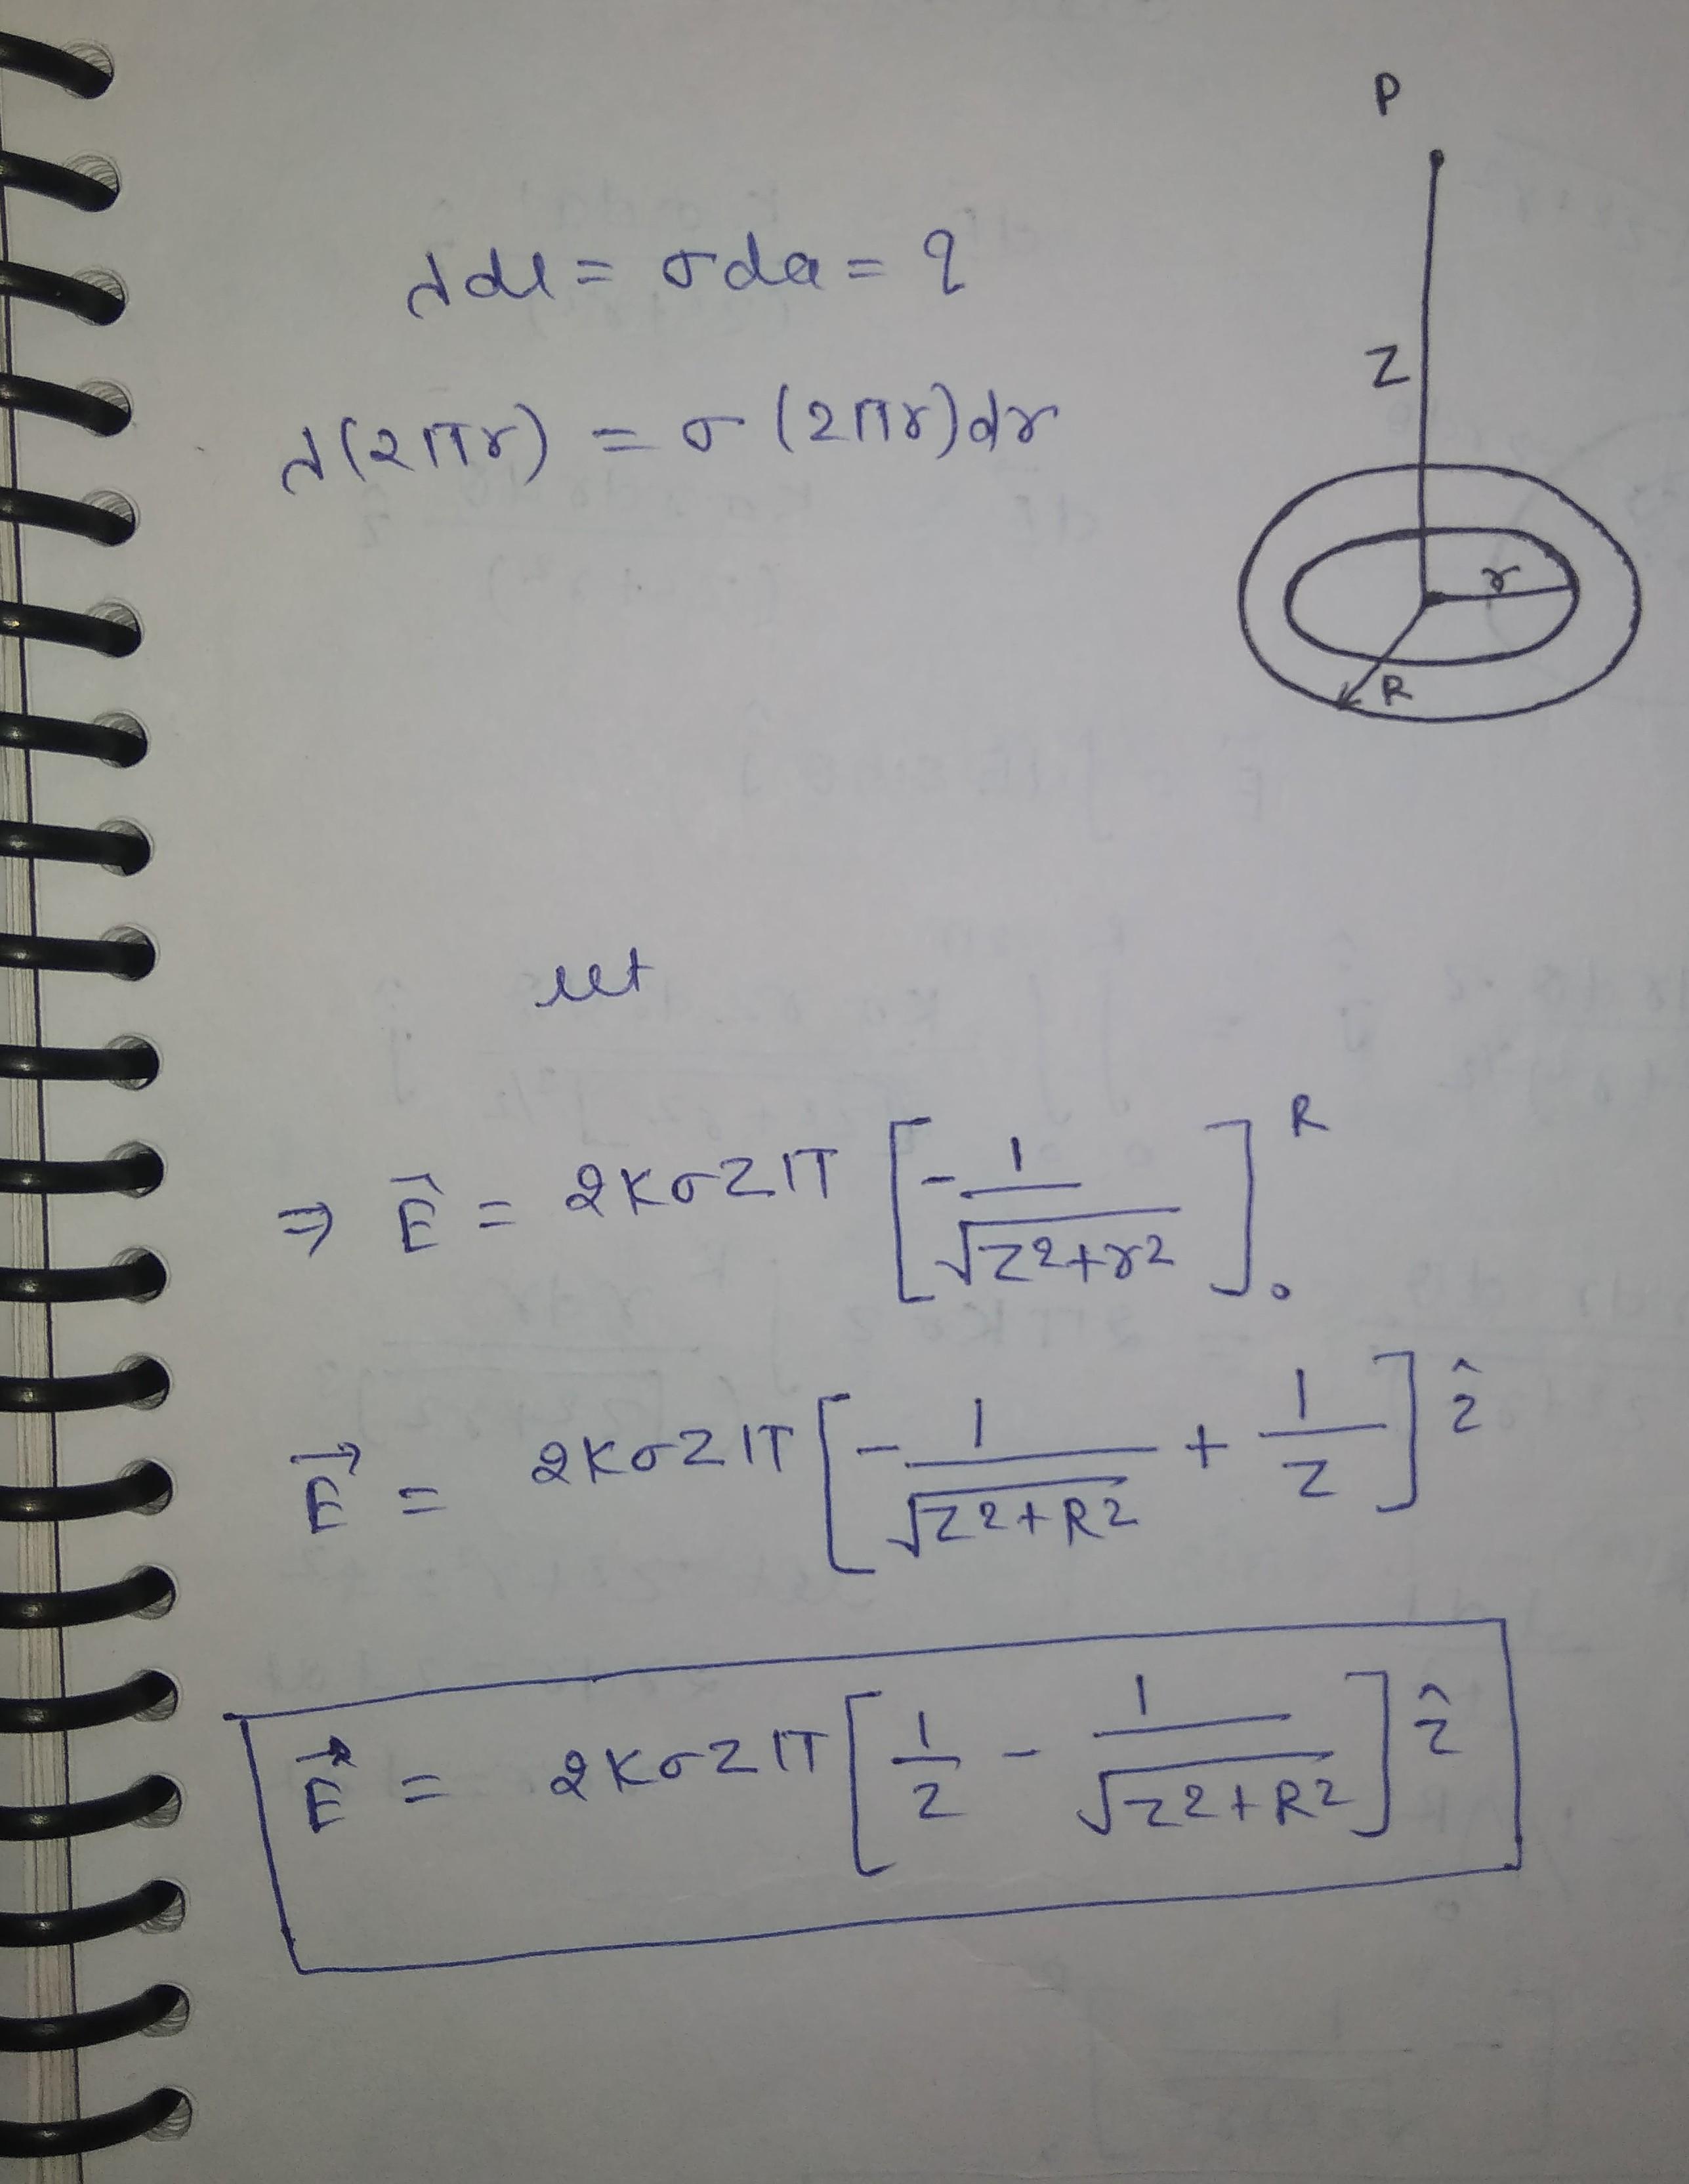 P
λdl = σda = q
Z
λ(2πr) = σ(2πr)dr
r
R
let
⇒ E⃗ = 2KσZπ [-1/√(Z²+r²)]₀ᴿ
E⃗ = 2KσZπ [-1/√(Z²+R²) + 1/Z] ẑ
E⃗ = 2KσZπ [1/Z - 1/√(Z²+R²)] ẑ